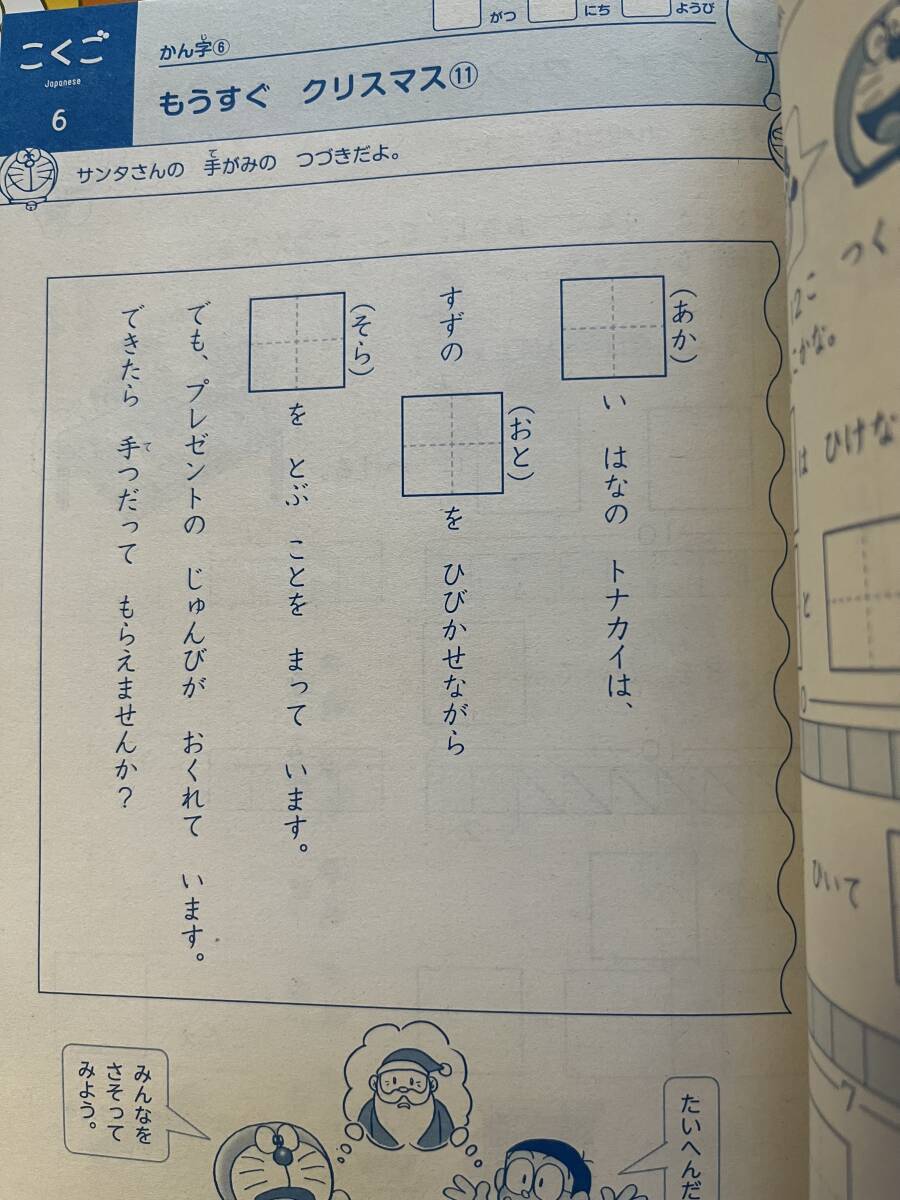 こくご
Japanese
6
がつ にち ようび
かん字⑥
じ
もうすぐ クリスマス⑪
サンタさんの 手がみの つづきだよ。
て
(あか)
い はなの トナカイは、
すずの
(おと)
を ひびかせながら
(そら)
を とぶ ことを まって います。
でも、プレゼントの じゅんびが おくれて います。
できたら 手つだって もらえませんか?
て
たいへんだ
みんなを
さそって
みよう。
つく
かな。
は ひげな
と
ひいて